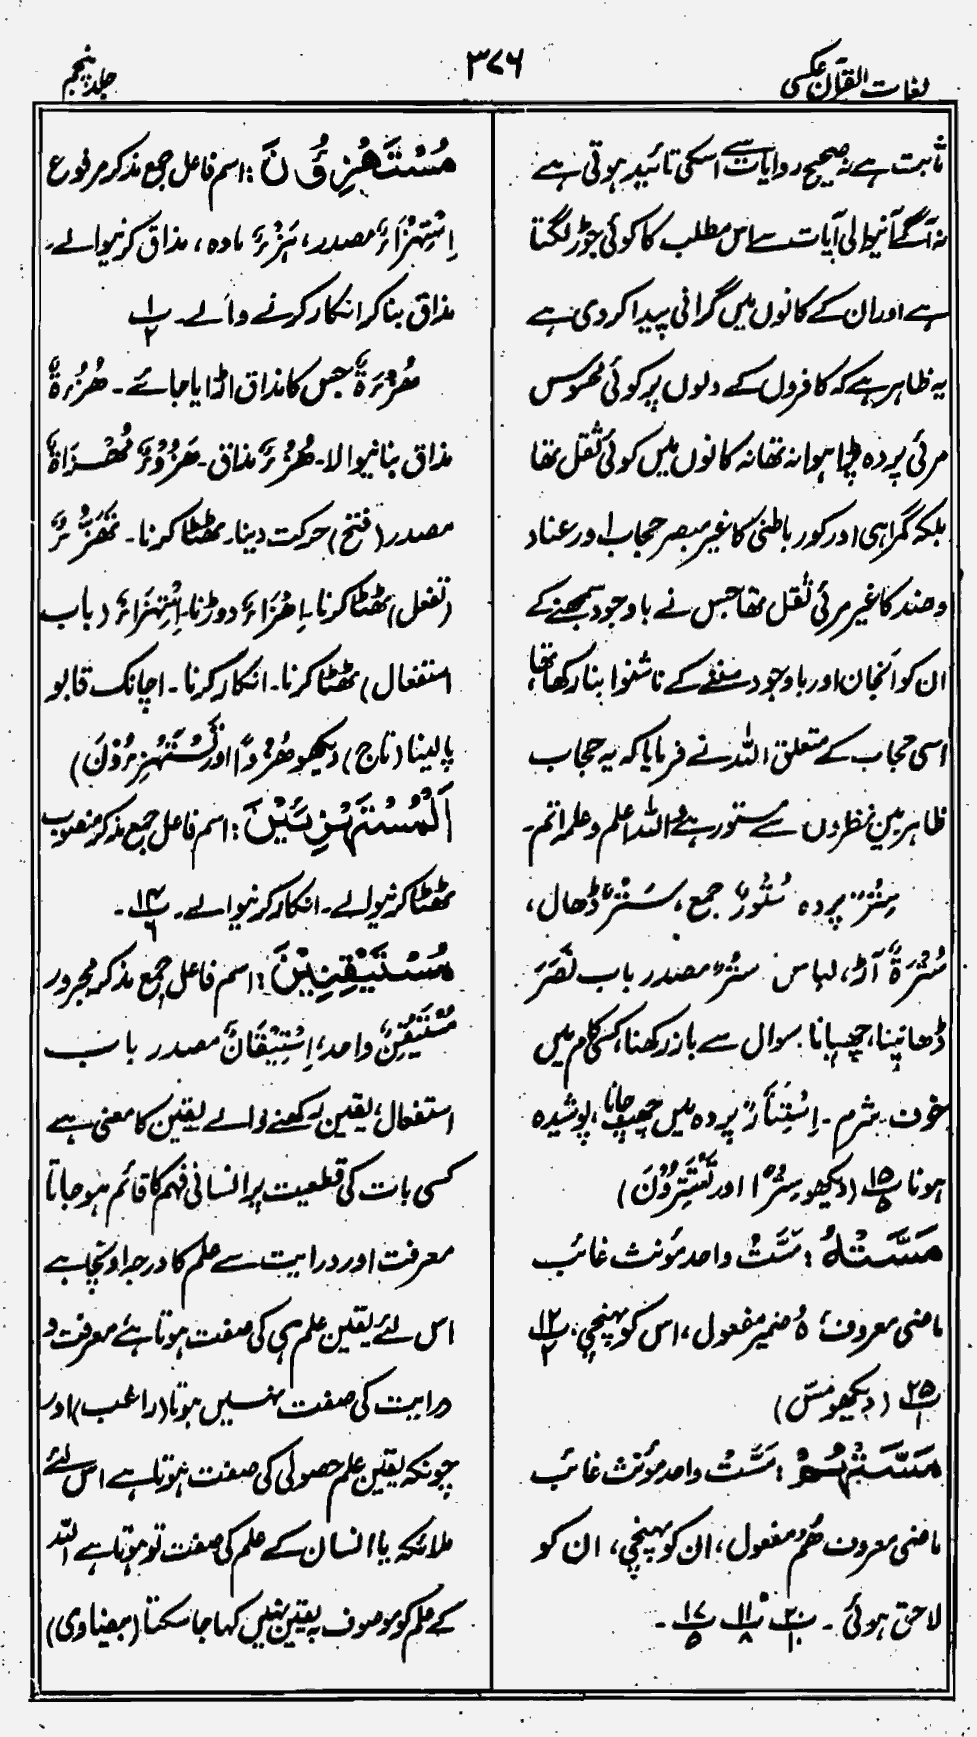 لغات القرآن عکسی
۳۷۶
جلد پنجم
ثابت ہے نہ صحیح روایات سے اسکی تائید ہوتی ہے
نہ آگے آنیوالی آیات سے اس مطلب کا کوئی جوڑ لگتا
ہے اور ان کے کانوں میں گرانی پیدا کردی ہے
یہ ظاہر ہے کہ کافروں کے دلوں پر کوئی محسوس
مرئی پردہ پڑا ہوا نہ تھا نہ کانوں میں کوئی ثقل تھا
بلکہ گمراہی اور کور باطنی کا غیر مبصر حجاب اور عناد
وضد کا غیر مرئی ثقل تھا جس نے باوجود سمجھنے کے
ان کو انجان اور باوجود سننے کے ناشنوا بنا رکھا تھا،
اسی حجاب کے متعلق اللہ نے فرمایا کہ یہ حجاب
ظاہر بین نظروں سے مستور ہے واللہ اعلم وعلمہ اتم۔
سِتْرٌ پردہ سُتُورٌ جمع، سَتْرٌ ڈھال،
سُتْرَةٌ آڑ، لباس سَتْرٌ مصدر باب نَصَرَ
ڈھانپنا، چھپانا سوال سے باز رکھنا، کسی کام میں
خوف۔ شرم۔ اِسْتِتَارٌ پردہ میں چھپ جانا، پوشیدہ
ہونا پ۱۵/۵ (دیکھو سِتْرًا اور تَسْتَتِرُوْنَ)
مَسَّتْهُ: مَسَّتْ واحد مؤنث غائب
ماضی معروف ہُ ضمیر مفعول، اس کو پہنچی، پ۱۲/۲
پ۲۵/۱ (دیکھو مسّ)
مَسَّتْهُمْ: مَسَّتْ واحد مؤنث غائب
ماضی معروف ھُمْ مفعول، ان کو پہنچی، ان کو
لاحق ہوئی ۔ پ۲۰/۱۰ پ۱۱/۸ پ۱۷/۵ ۔
مُسْتَهْزِءُوْنَ: اسم فاعل جمع مذکر مرفوع
اِسْتِهْزَاءٌ مصدر، هَزْءٌ مادہ، مذاق کرنیوالے۔
مذاق بنا کر انکار کرنے والے۔ پ۱/۲
هُزْءَةٌ جس کا مذاق اڑایا جائے ۔ هُزَءَةٌ
مذاق بنانیوالا۔ هُزْءٌ مذاق۔ هَزْءٌ مَهْزَاَةٌ
مصدر (فتح) حرکت دینا۔ ٹھٹا کرنا۔ تَهَزُّءٌ
(تفعل) ٹھٹا کرنا۔ اِهْزَاءٌ دوڑنا۔ اِسْتِهْزَاءٌ (باب
استفعال) ٹھٹا کرنا۔ انکار کرنا۔ اچانک قابو
پالینا (تاج) دیکھو هُزُوًا اور تَسْتَهْزِءُوْنَ)
اَلْمُسْتَهْزِئِيْنَ: اسم فاعل جمع مذکر منصوب
ٹھٹا کرنیوالے۔ انکار کرنیوالے۔ پ۱۴/۶ ۔
مُسْتَيْقِنِيْنَ: اسم فاعل جمع مذکر مجرور
مُسْتَيْقِنٌ واحد، اِسْتِيْقَانٌ مصدر باب
استفعال، یقین رکھنے والے یقین کا معنی ہے
کسی بات کی قطعیت پر انسانی فہم کا قائم ہو جانا
معرفت اور درایت سے علم کا درجہ اونچا ہے
اس لئے یقین علم ہی کی صفت ہوتا ہے معرفت و
درایت کی صفت نہیں ہوتا (راغب) اور
چونکہ یقین علم حصولی کی صفت ہوتا ہے اس لئے
ملائکہ یا انسان کے علم کی صفت تو ہوتا ہے اللہ
کے علم کو موصوف بہ یقین نہیں کہا جا سکتا (بیضاوی)